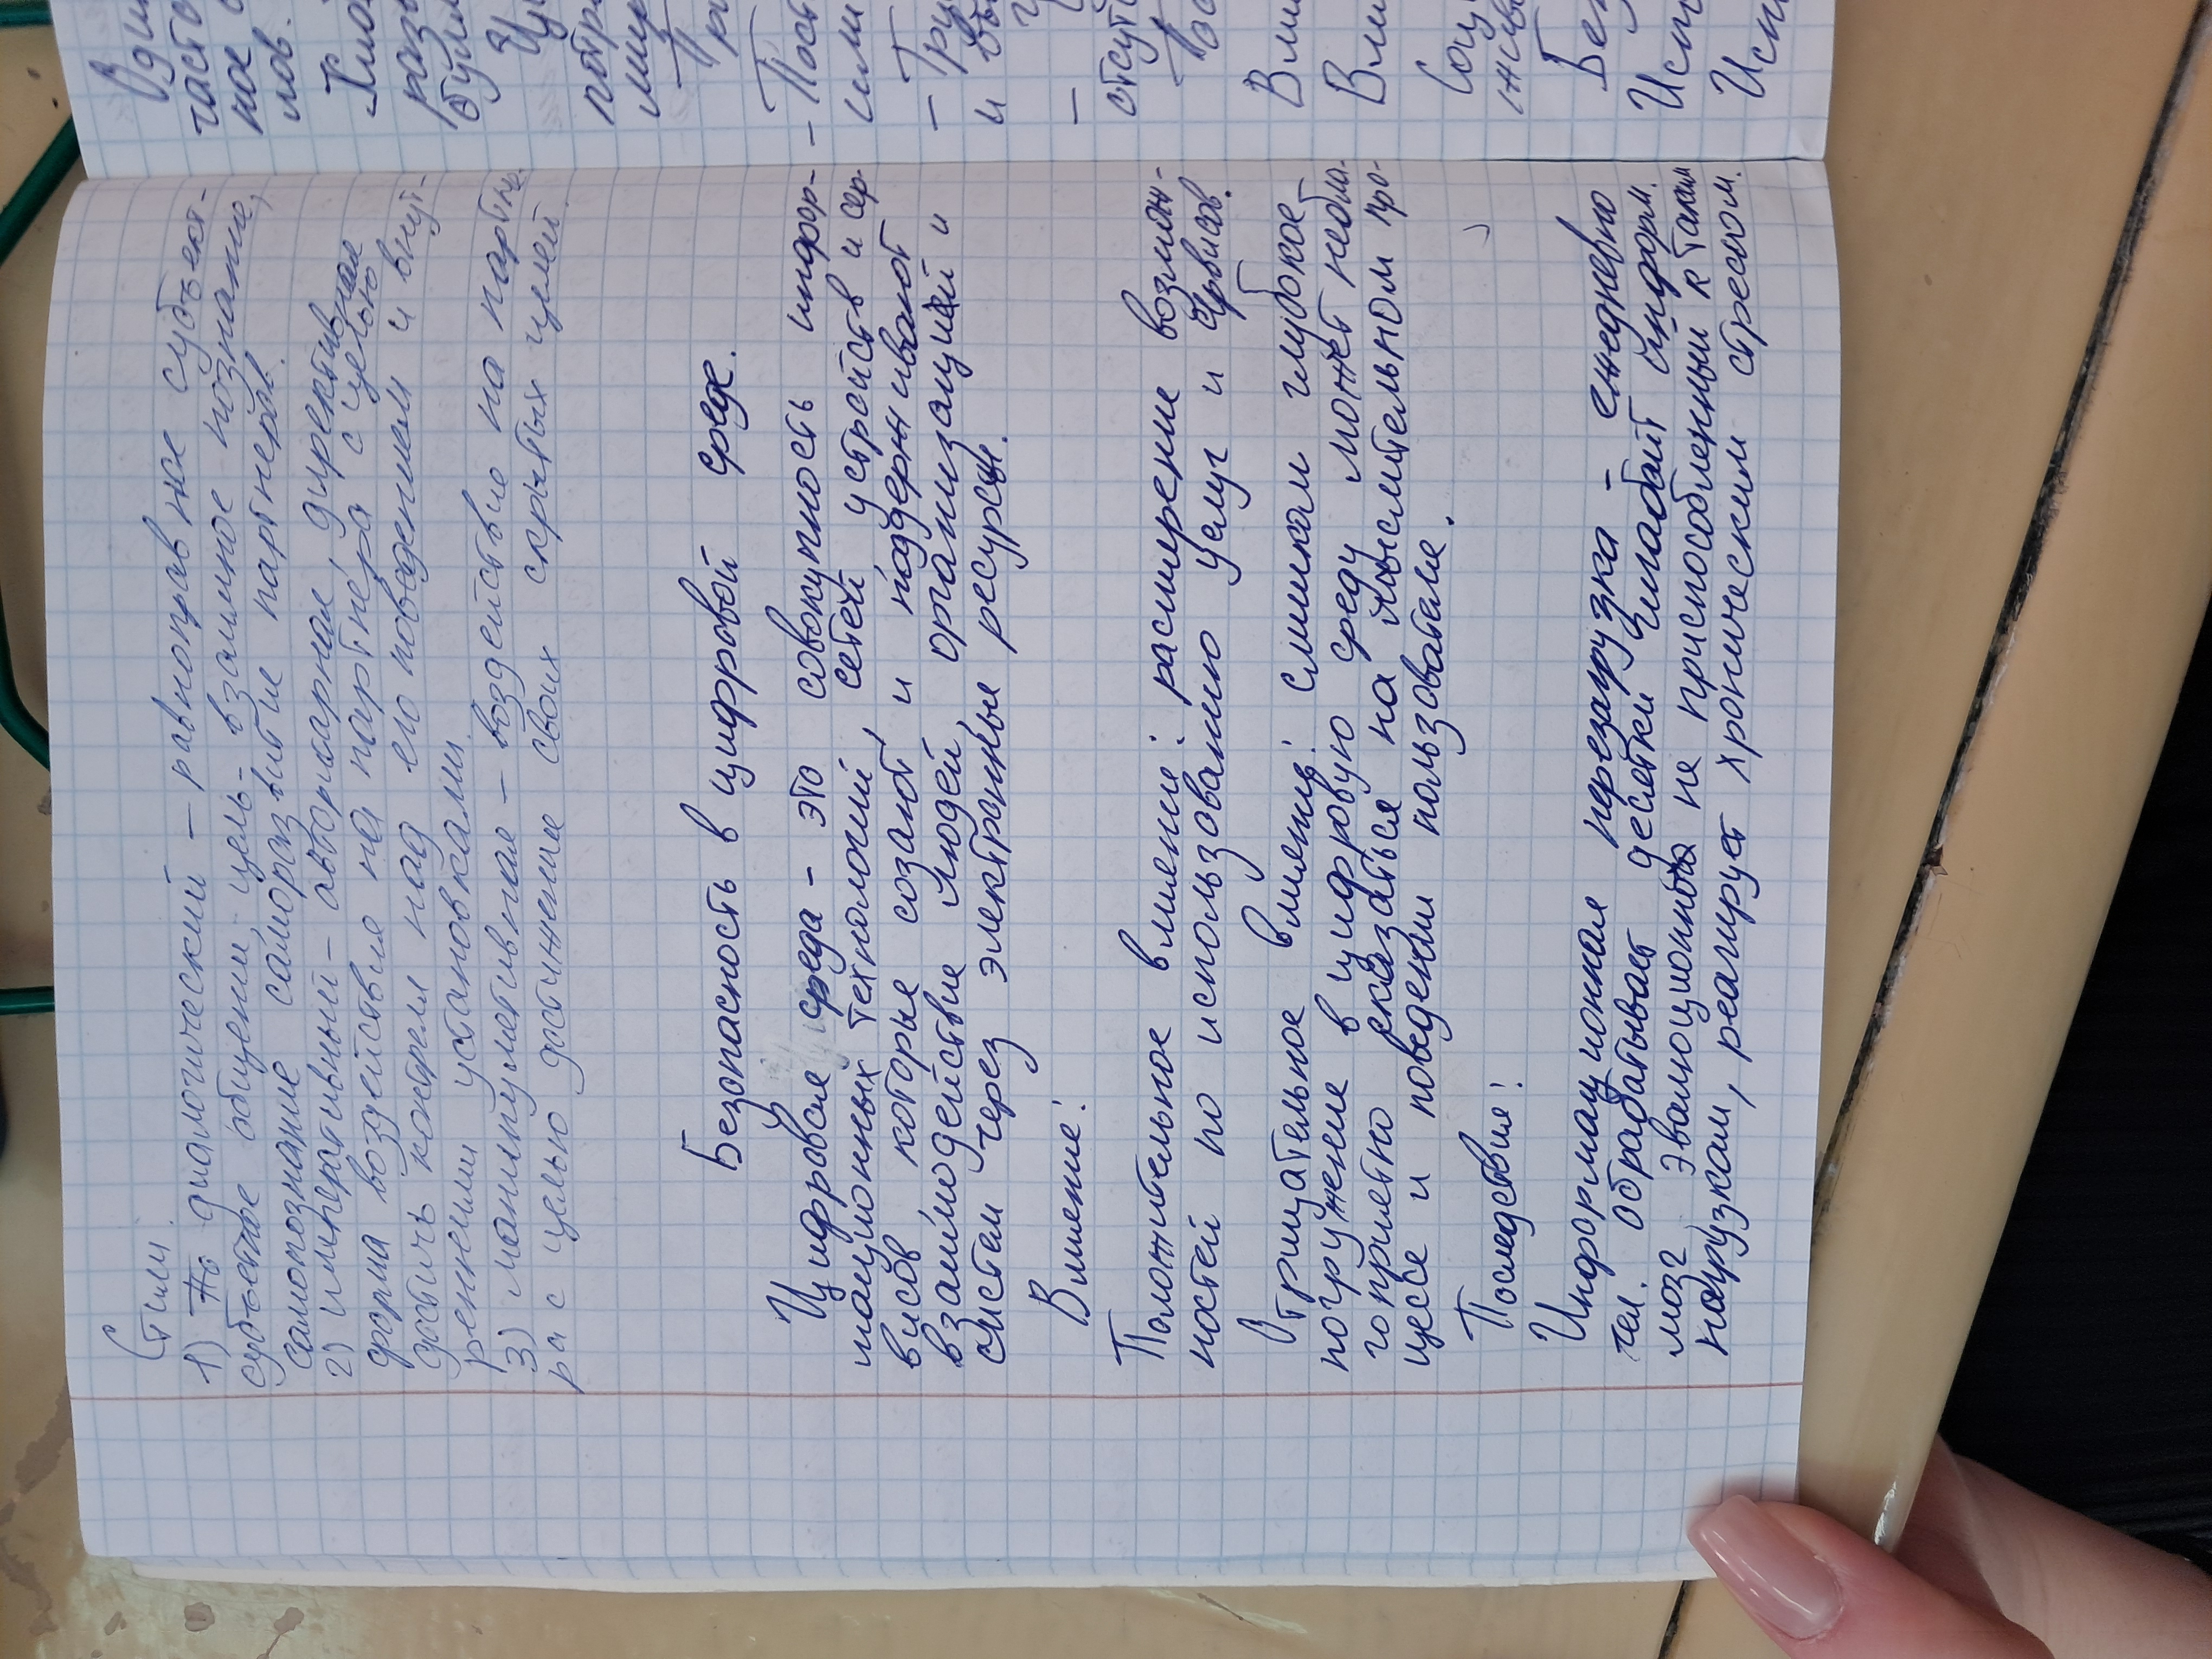 Стили:
1) диалогический – равноправное субъект-
субъектное общение, цель - взаимное познание,
самопознание саморазвитие партнеров.
2) императивный – авторитарная, директивная
форма воздействия на партнёра с целью
достичь контроля над его поведением и внут-
ренними установками.
3) манипулятивная – воздействие на партнё-
ра с целью достижение своих скрытых целей.
Безопасность в цифровой среде.
Цифровая среда – это совокупность инфор-
мационных технологий, сетей устройств и сер-
висов которые созают и поддерживают
взаимодействие людей, организаций и
систем через электронные ресурсы.
Влияние:
Положительное влияние: расширение возмож-
ностей по использованию услуг и сервисов.
Отрицательное влияние: слишком глубокое
погружение в цифровую среду может небла-
гоприятно сказаться на мыслительном про-
цессе и поведении пользователя.
Последствия:
Информационная перезагрузка – ежедневно
чел. обрабатывает десятки Гигабайт информ.
мозг эволюционно не приспособленный к таким
нагрузкам, реагирует хроническим стрессом.
Вли
Вли
Соц
Без
Ист
Исп